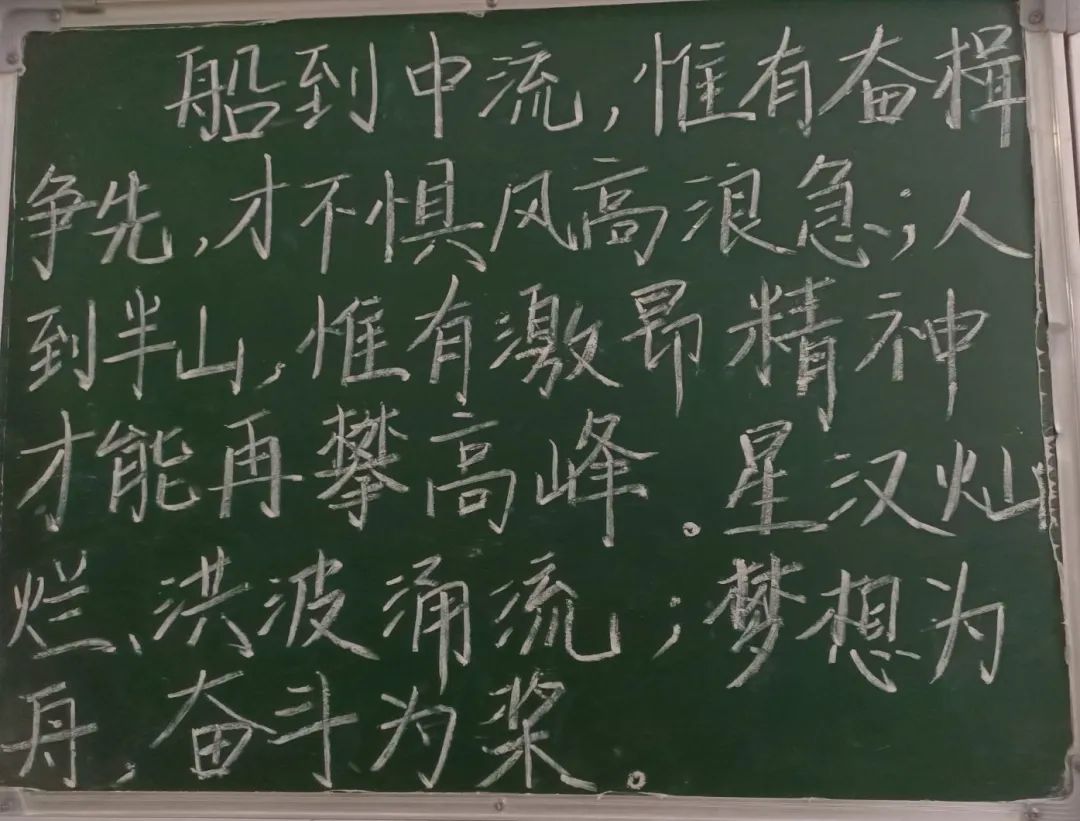 船到中流,惟有奋楫
争先,才不惧风高浪急;人
到半山,惟有激昂精神
才能再攀高峰。星汉灿
烂、洪波涌流;梦想为
舟,奋斗为桨。